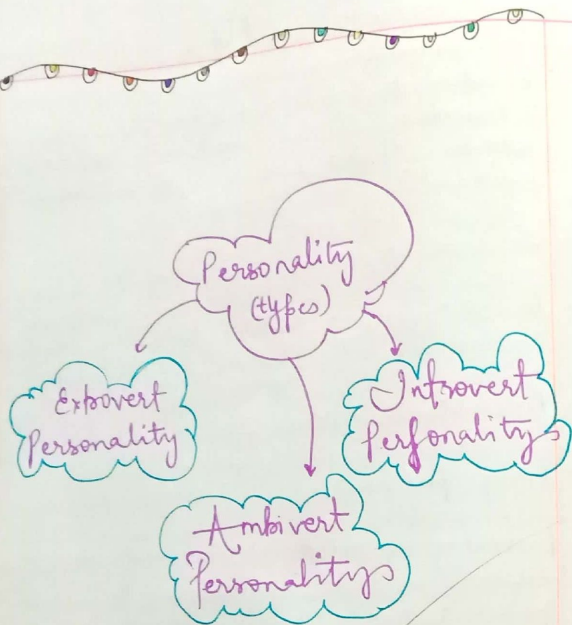 Personality
(types)
Extrovert
Personality
Introvert
Personality
Ambivert
Personality